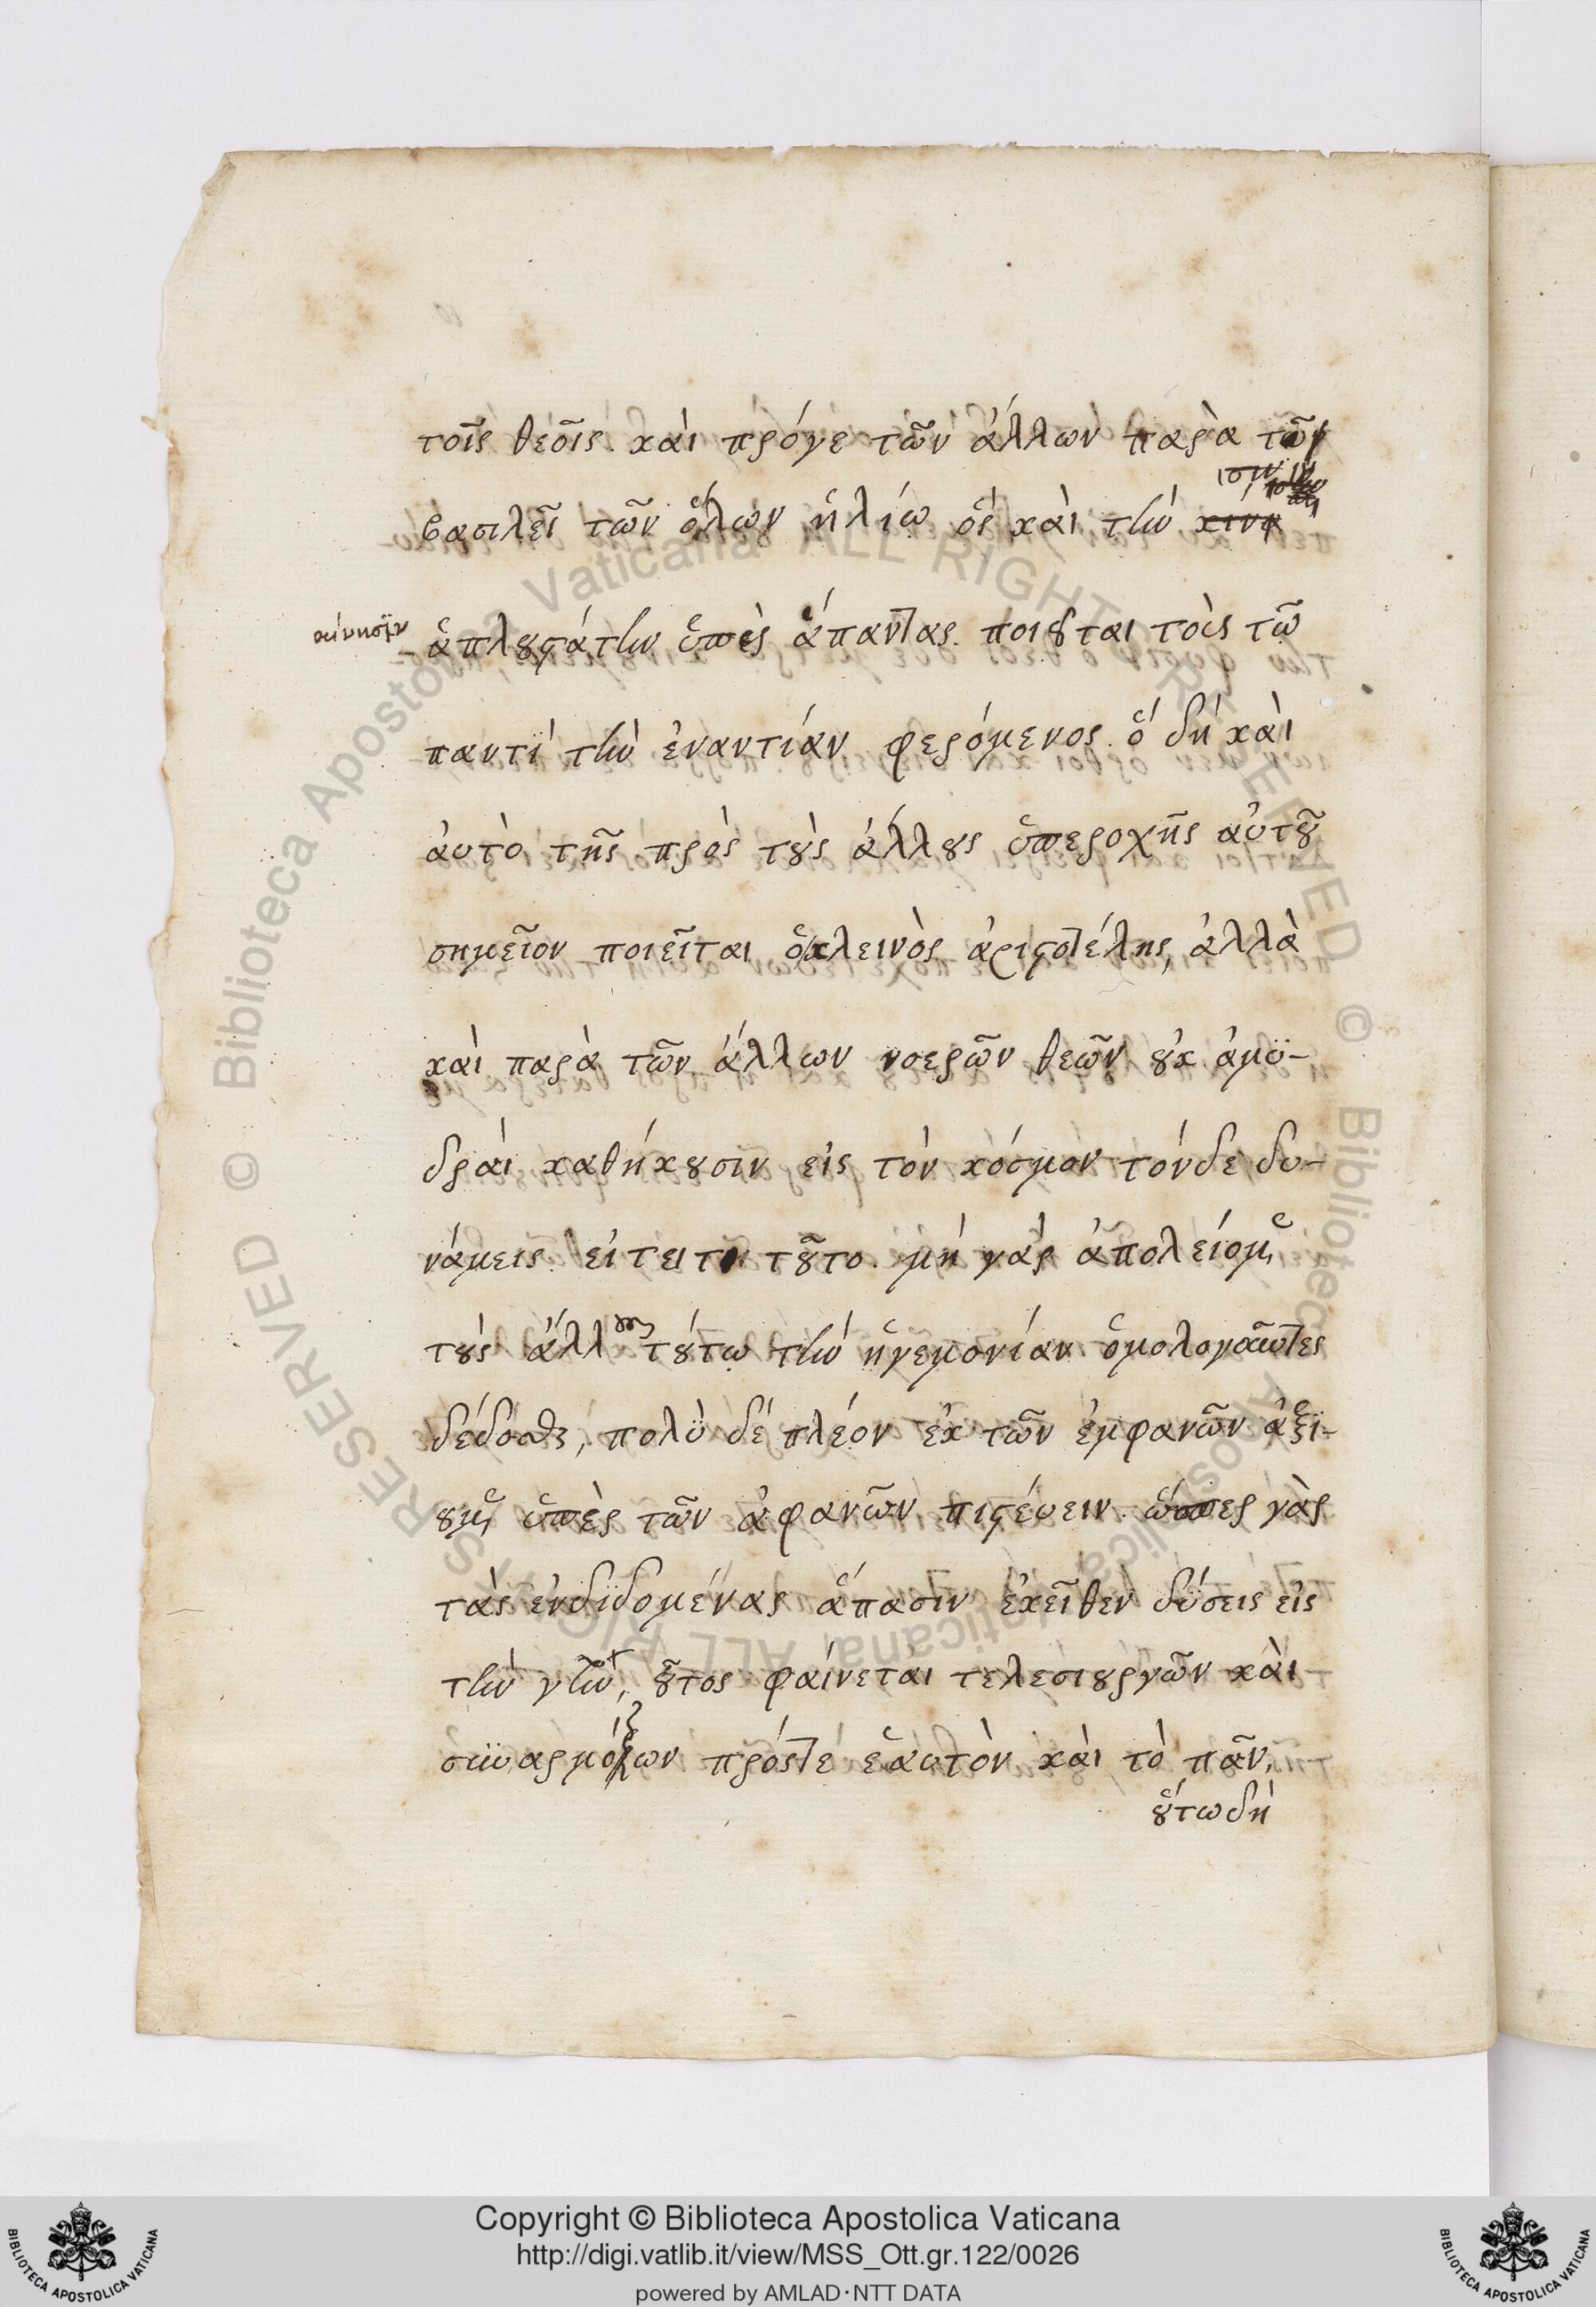 τοῖς θεοῖς. καὶ πρόγε τῶν ἄλλων παρὰ τῶ
βασιλεῖ τῶν ὅλων ἡλίω ὃς καὶ τὴν
κίνησϊν ἁπλουστάτην ὑπὲρ ἅπαντας ποιουται τοὺς τῶ
παντὶ τὴν ἐναντίαν φερόμενος. ὃ δὴ καὶ
αὐτὸ τῆς πρὸς τοὺς ἄλλους ὑπεροχῆς αὐτοῦ
σημεῖον ποιεῖται ὁ κλεινὸς ἀριστοτέλης, ἀλλὰ
καὶ παρὰ τῶν ἄλλων νοερῶν θεῶν οὐκ ἀμϋ-
δραὶ καθήκουσιν εἰς τὸν κόσμον τόνδε δυ-
νάμεις. εἶτα τι τοῦτο. μὴ γὰρ ἀπολείομεν
τοὺς ἄλλους τούτω τὴν ἡγεμονίαν ὁμολογοῦντες
δέδοσθαι, πολὺ δέ πλέον ἐκ τῶν ἐμφανῶν ἀξϊ-
οῦμεν ὑπὲρ τῶν ἀφανῶν πιστέυειν. ὥσπερ γὰρ
τὰς ἐνδϊδομένας ἅπασιν ἐκεῖθεν δύσεις εἰς
τὴν γῆν, οὗτος φαίνεται τελεσιουργῶν καὶ
συναρμόζων πρόστε ἑαυτὸν καὶ τὸ πᾶν,
οὕτω δὴ
Copyright © Biblioteca Apostolica Vaticana
http://digi.vatlib.it/view/MSS_Ott.gr.122/0026
powered by AMLAD·NTT DATA